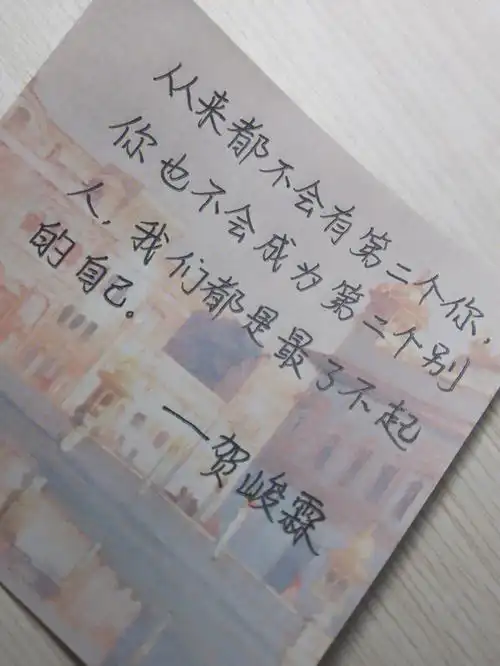 从来都不会有第二个你,
你也不会成为第二个别
人,我们都是最了不起
的自己。
—贺峻霖